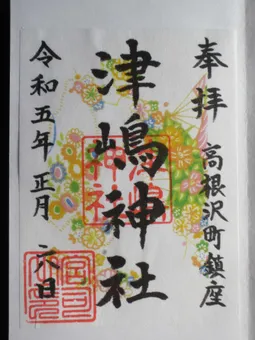 奉拝
高根沢町鎮座
津嶋神社
令和五年 正月 六日